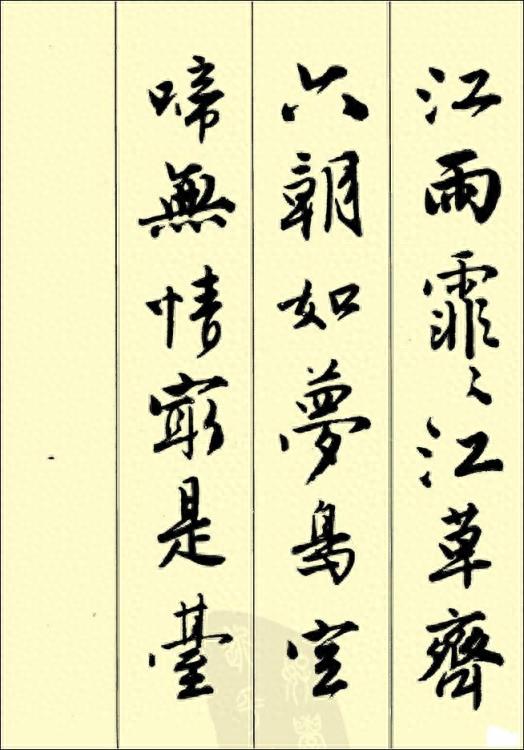 江雨霏〻江草齊
六朝如夢鳥空
啼無情窮是臺